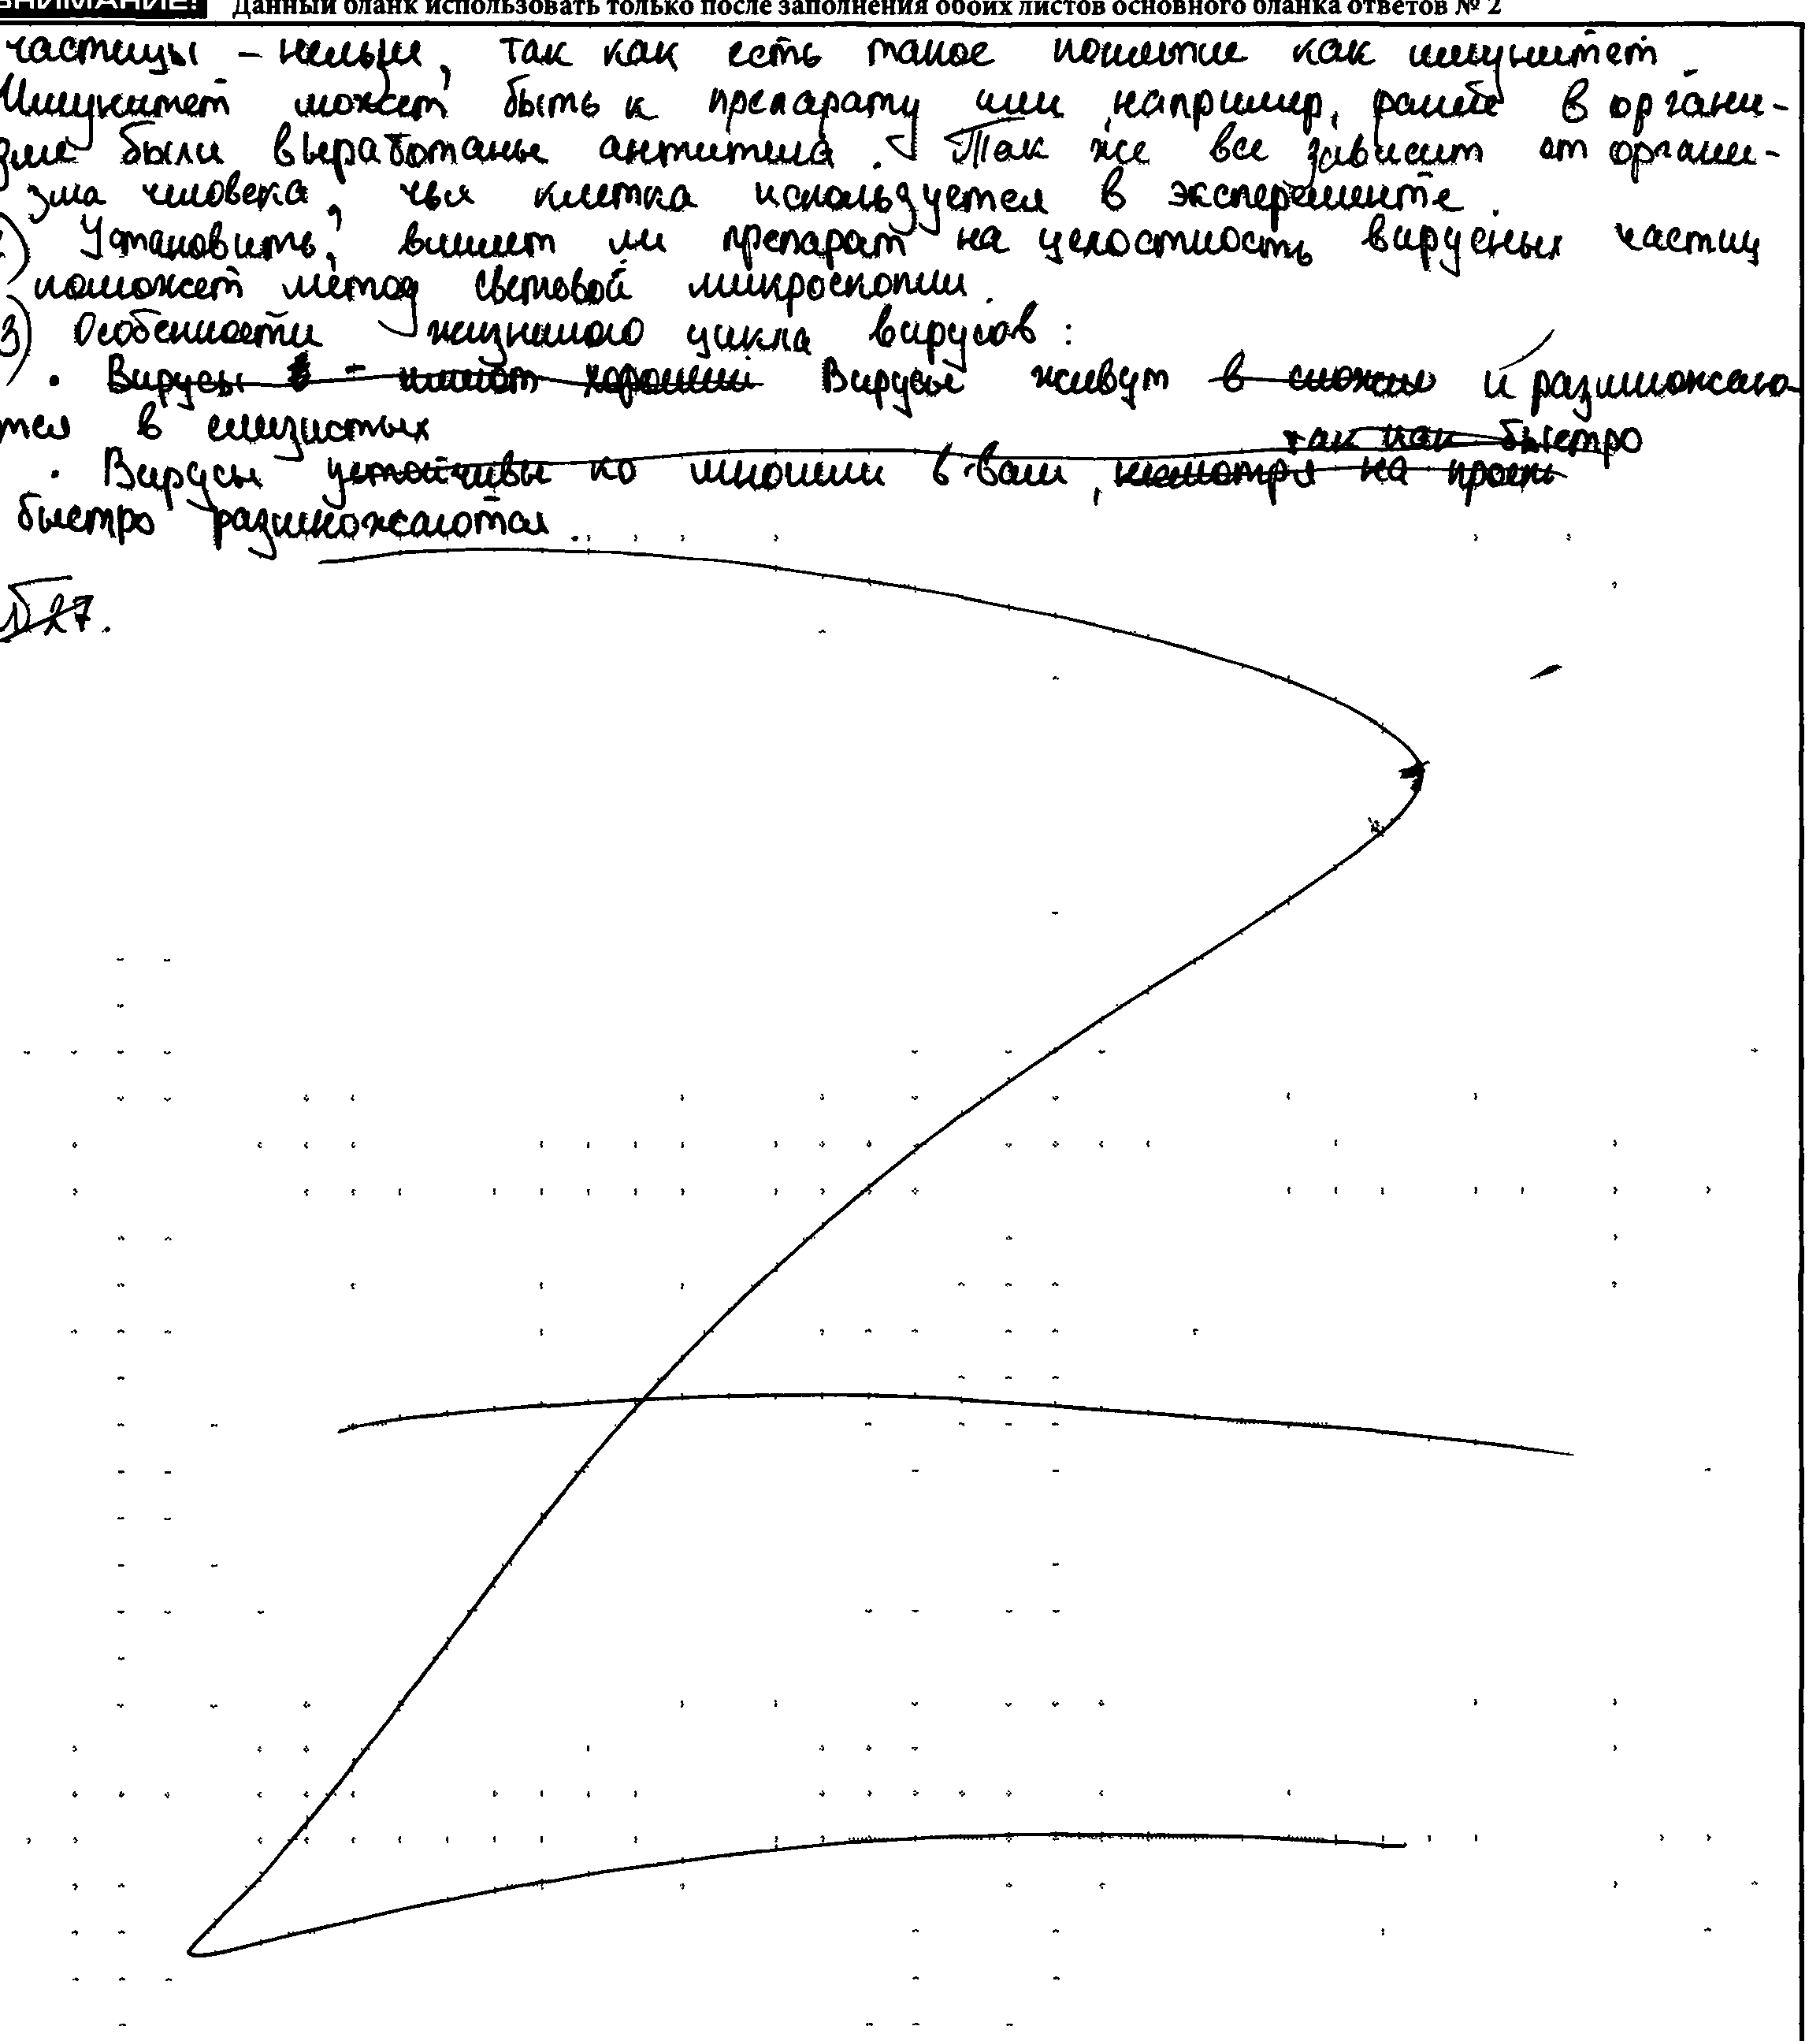 ВНИМАНИЕ! Данный бланк использовать только после заполнения обоих листов основного бланка ответов № 2
частицы – нельзя, так как есть такое понятие как иммунитет.
Иммунитет может быть к препарату или например, ранее в органи-
зме были выработаны антитела. Так же все зависит от органи-
зма человека, чья клетка используется в эксперименте.
2) Установить, влияет ли препарат на целостность вирусных частиц
поможет метод световой микроскопии.
3) Особенности жизненного цикла вирусов:
• Вирусы имеют хороший Вирусы живут в сложно и размножаю
тся в слизистых
так как быстро
• Вирусы устойчивы ко многим, несмотря на
быстро размножаются.
№27.